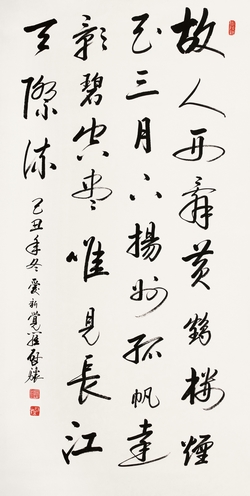 故人西辭黄鶴樓煙
花三月下揚州孤帆遠
影碧空盡唯見長江
天際流
己丑年冬愛新覺羅